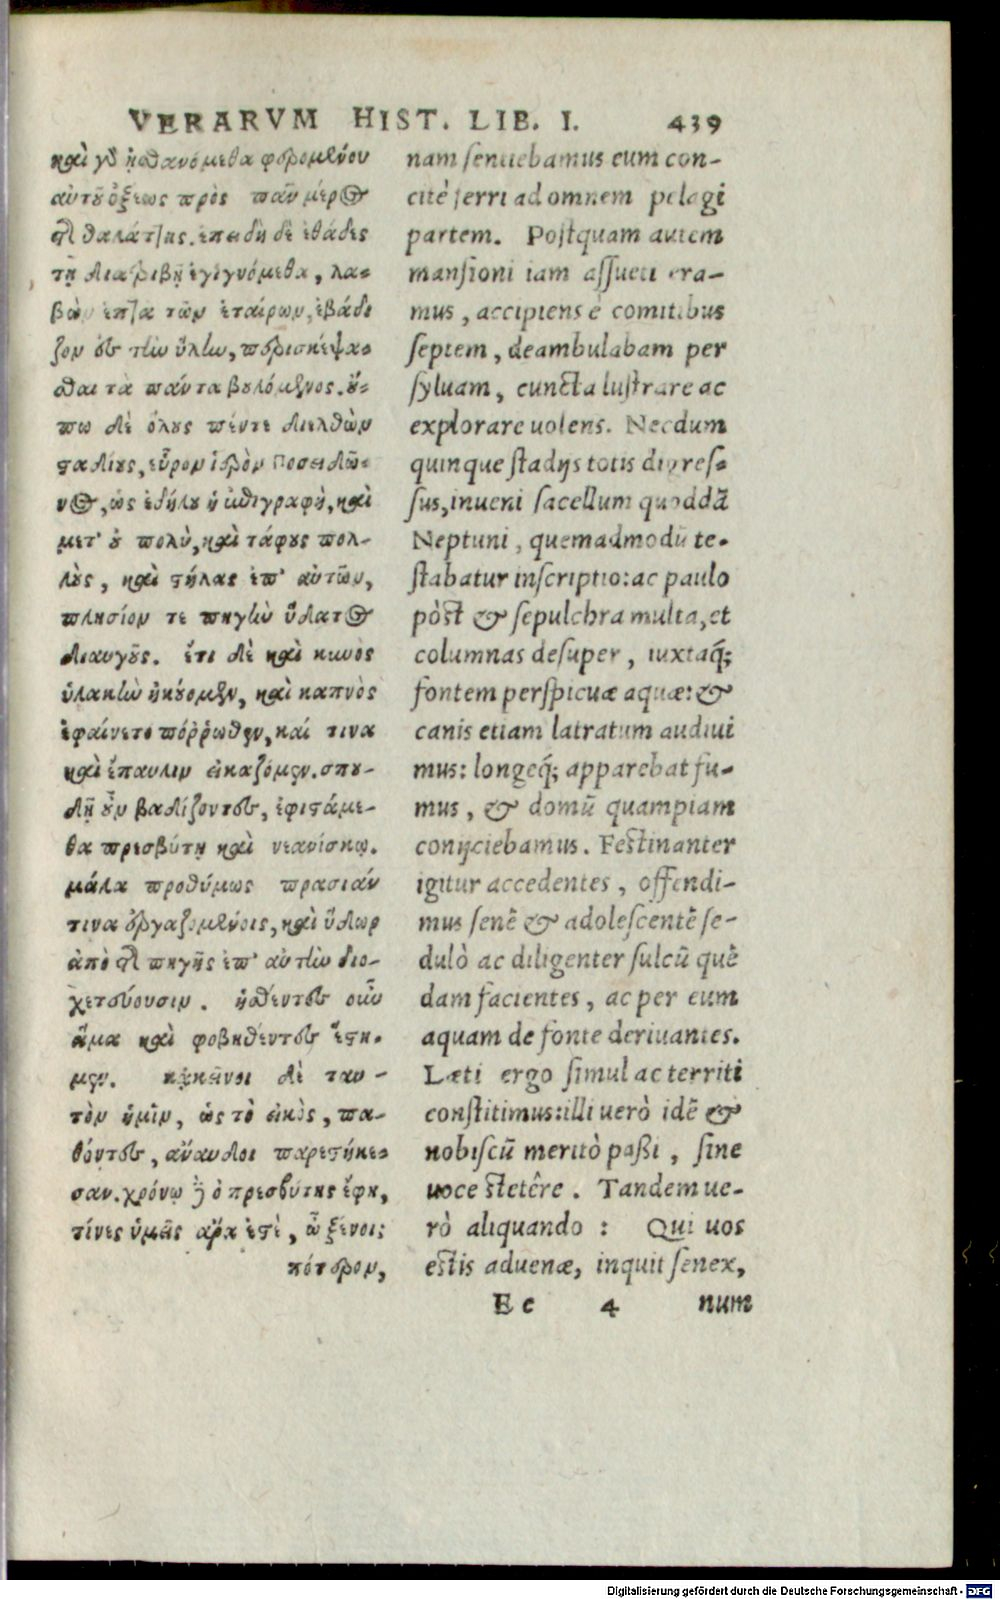 VERARVM HIST. LIB. I. 439
καὶ γὰρ ᾐσθανόμεθα φερομένου
αὐτοῦ ὀξέως πρὸς πᾶν μέρος
τῆς θαλάττης. ἐπειδὴ δὲ ἐθάδες
τῇ διατριβῇ ἐγιγνόμεθα, λα-
βὼν ἑπτὰ τῶν ἑταίρων, ἐβάδι
ζον ἐς τὴν ὕλην, περισκέψα-
σθαι τὰ πάντα βουλόμενος. οὔ-
πω δὲ ὅλους πέντε διελθὼν
σταδίους, εὗρον ἱερὸν Ποσειδῶ-
νος, ὡς ἐδήλου ἡ ἐπιγραφὴ, καὶ
μετ' οὐ πολὺ, καὶ τάφους πολ-
λοὺς, καὶ στήλας ἐπ' αὐτῶν,
πλησίον τε πηγὴν ὕδατος
διαυγοῦς. ἔτι δὲ καὶ κυνὸς
ὑλακὴν ἠκούομεν, καὶ καπνὸς
ἐφαίνετο πόῤῥωθεν, καί τινα
καὶ ἔπαυλιν εἰκαζόμεν. σπου-
δῇ οὖν βαδίζοντες, ἐφιστάμε-
θα πρεσβύτῃ καὶ νεανίσκῳ.
μάλα προθύμως πρασιάν
τινα ἐργαζομένοις, καὶ ὕδωρ
ἀπὸ τῆς πηγῆς ἐπ' αὐτὴν διο-
χετεύουσιν. ἡσθέντες οὖν
ἅμα καὶ φοβηθέντες ἔστη-
μεν. κἀκεῖνοι δὲ ταυ-
τὸν ἡμῖν, ὡς τὸ εἰκὸς, πα-
θόντες, ἄναυδοι παρεστήκε-
σαν. χρόνῳ δὲ ὁ πρεσβύτης ἔφη,
τίνες ὑμεῖς ἄρα ἐστὲ, ὦ ξένοι;
πότερον,
nam sentiebamus eum con-
citè ferri ad omnem pelagi
partem. Postquam autem
mansioni iam assueti era-
mus, accipiens è comitibus
septem, deambulabam per
syluam, cuncta lustrare ac
explorare uolens. Necdum
quinque stadijs totis digres-
sus, inueni sacellum quoddā
Neptuni, quemadmodū te-
stabatur inscriptio: ac paulo
pòst & sepulchra multa, et
columnas desuper, iuxtaq́;
fontem perspicuæ aquæ: &
canis etiam latratum audiui
mus: longeq́; apparebat fu-
mus, & domū quampiam
conijciebamus. Festinanter
igitur accedentes, offendi-
mus senē & adolescentē se-
dulò ac diligenter sulcū quē
dam facientes, ac per eum
aquam de fonte deriuantes.
Læti ergo simul ac territi
constitimus: illi uerò idē &
nobiscū meritò paßi, sine
uoce stetêre. Tandem ue-
rò aliquando: Qui uos
estis aduenæ, inquit senex,
Ee 4 num
Digitalisierung gefördert durch die Deutsche Forschungsgemeinschaft - DFG